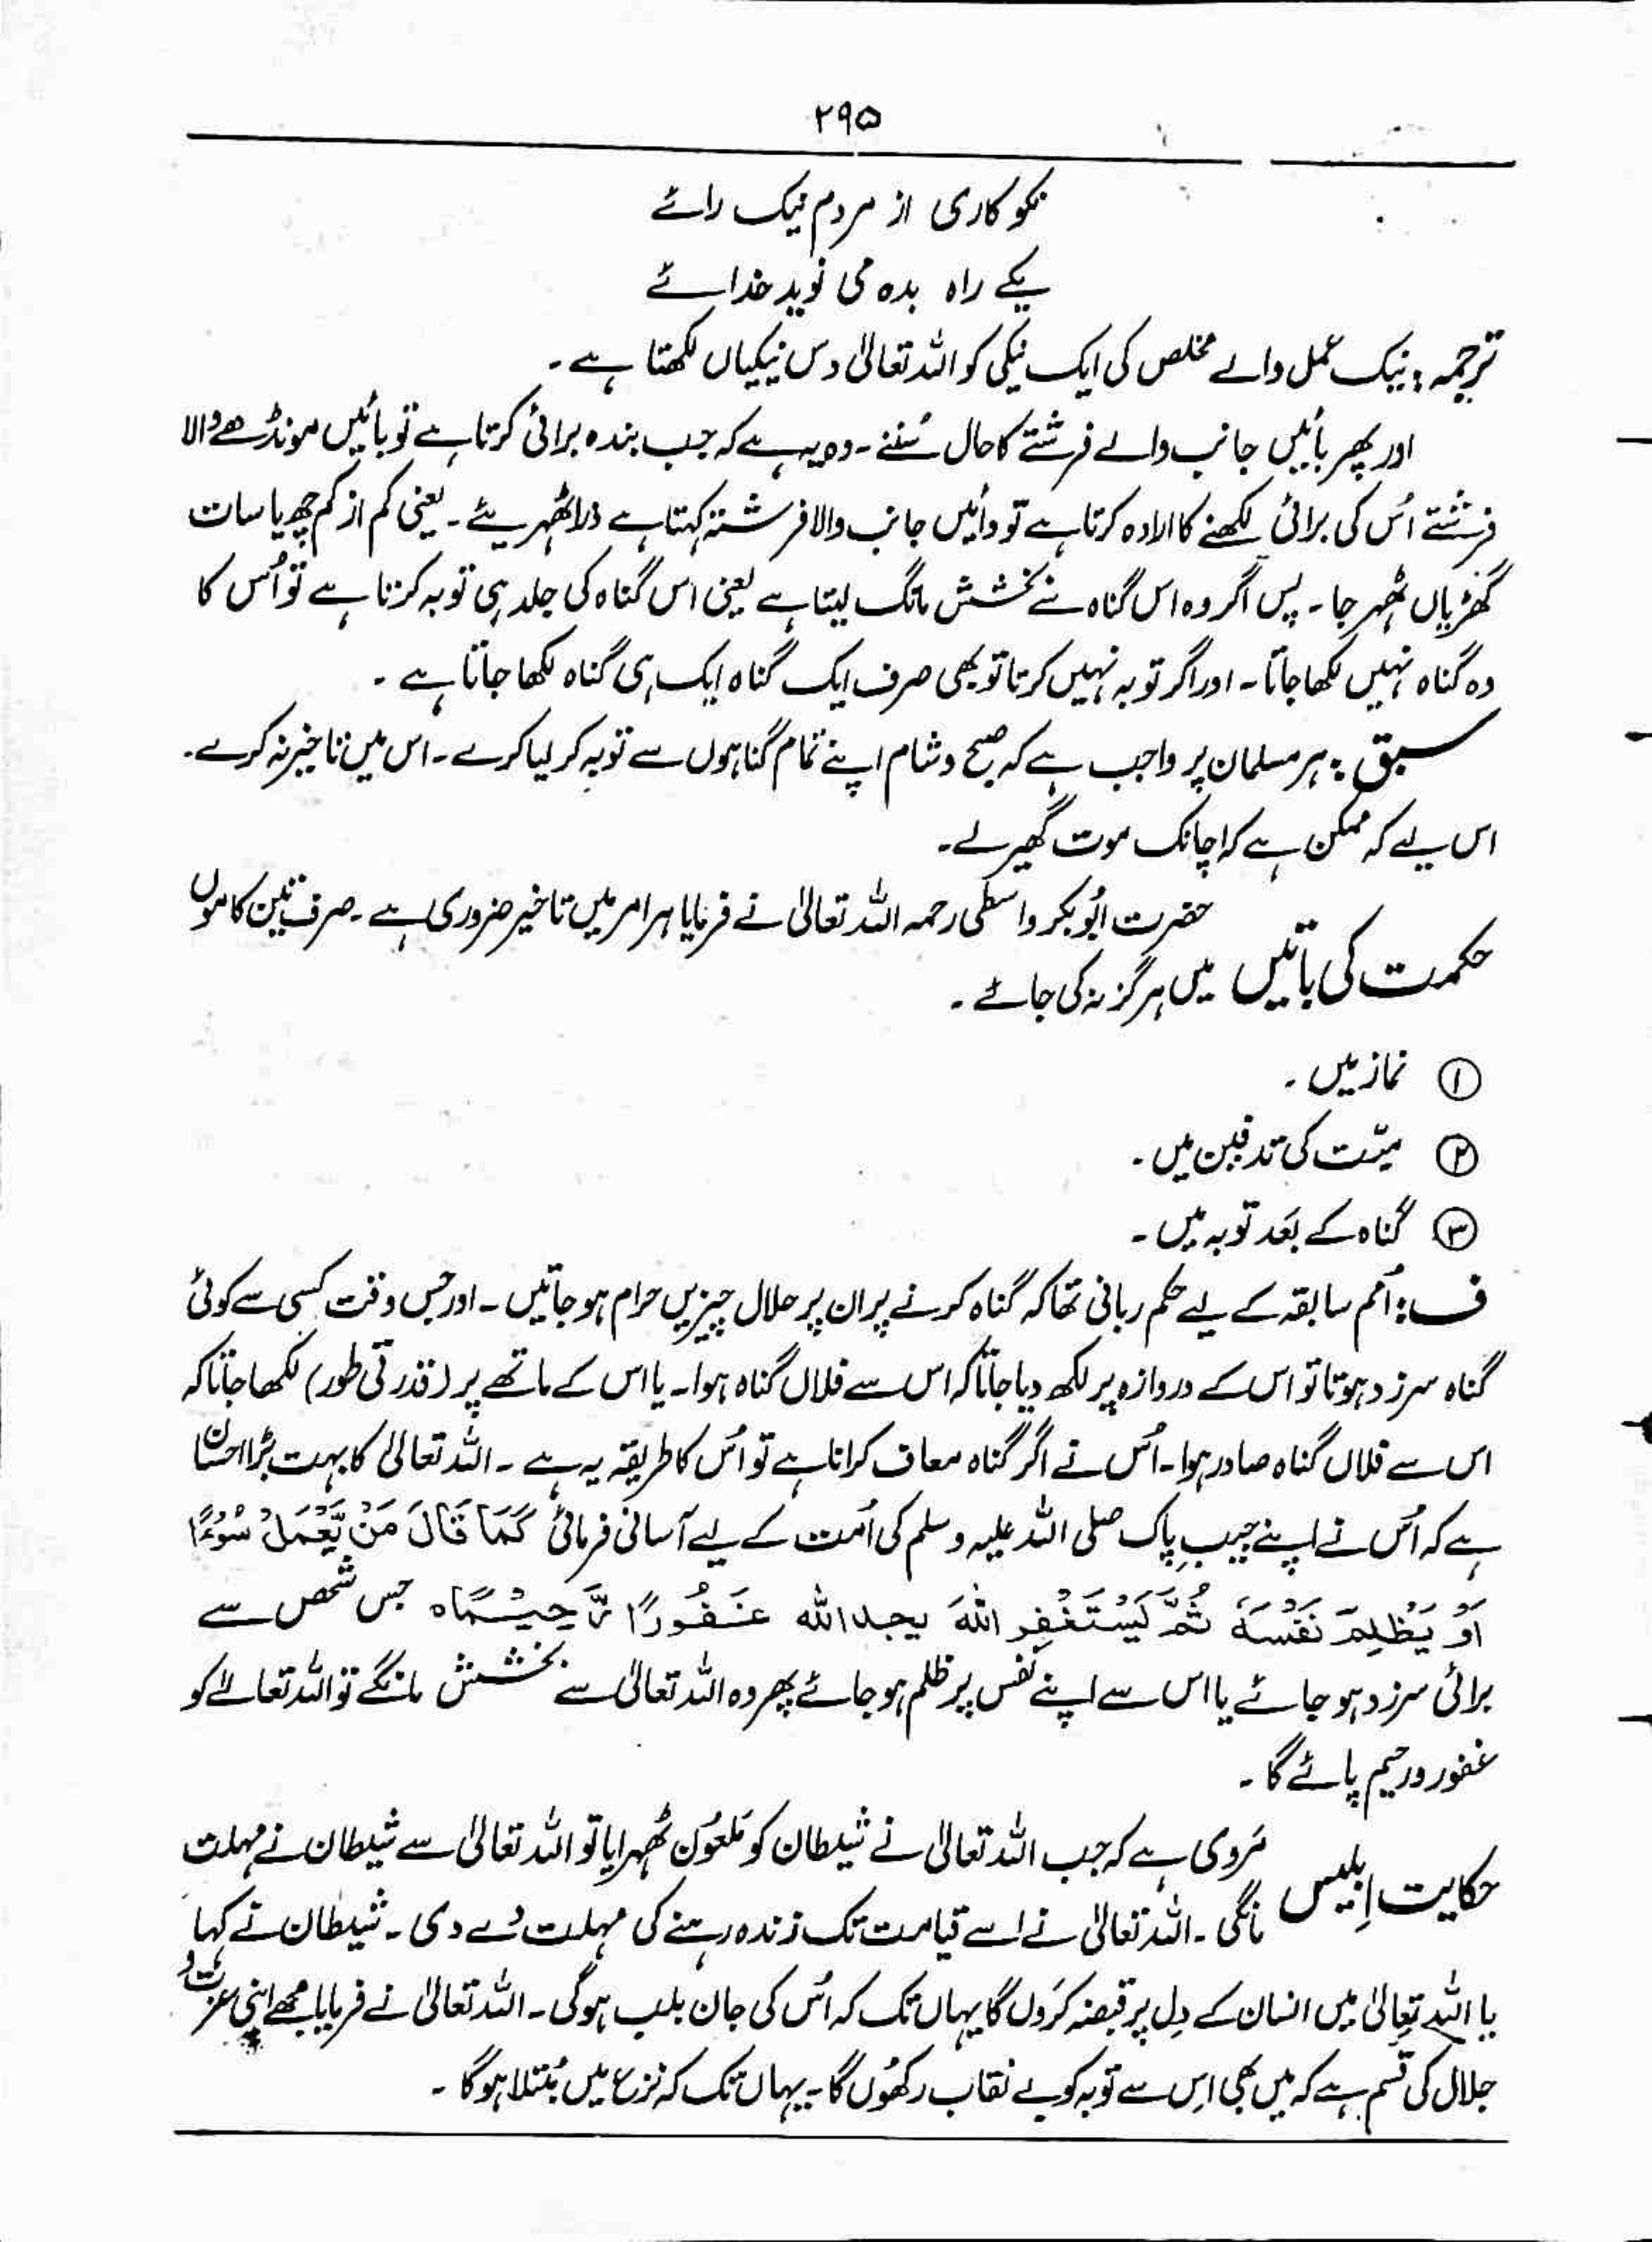 ۲۹۵
نکو کاری از مردم نیک رائے
یکے راہ بدہ می نوید خدائے
ترجمہ: نیک عمل والے مخلص کی ایک نیکی کو اللہ تعالیٰ دس نیکیاں لکھتا ہے۔
اور پھر بائیں جانب والے فرشتے کا حال سُنئے۔ وہ یہ ہے کہ جب بندہ برائی کرتا ہے تو بائیں مونڈھے والا
فرشتے اُس کی برائی لکھنے کا ارادہ کرتا ہے تو دائیں جانب والا فرشتہ کہتا ہے ذرا ٹھہریئے۔ یعنی کم از کم چھ یا سات
گھڑیاں ٹھہر جا۔ پس اگر وہ اس گناہ سے بخشش مانگ لیتا ہے یعنی اس گناہ کی جلد ہی توبہ کرتا ہے تو اُس کا
وہ گناہ نہیں لکھا جاتا۔ اور اگر توبہ نہیں کرتا تو بھی صرف ایک گناہ ایک ہی گناہ لکھا جاتا ہے۔
سبق: ہر مسلمان پر واجب ہے کہ صبح و شام اپنے تمام گناہوں سے توبہ کر لیا کرے۔ اس میں تاخیر نہ کرے۔
اس لیے کہ ممکن ہے کہ اچانک موت گھیر لے۔
حضرت ابُوبکر واسطی رحمہ اللہ تعالیٰ نے فرمایا ہر امر میں تاخیر ضروری ہے۔ صرف تین کاموں
حکمت کی باتیں میں ہرگز نہ کی جائے۔
① نماز میں۔
② میّت کی تدفین میں۔
③ گناہ کے بَعد توبہ میں۔
ف: اُمم سابقہ کے لیے حکم ربانی تھا کہ گناہ کرنے پر ان پر حلال چیزیں حرام ہو جاتیں۔ اور جس وقت کسی سے کوئی
گناہ سرزد ہوتا تو اس کے دروازہ پر لکھ دیا جاتا کہ اس سے فلاں گناہ ہوا۔ یا اس کے ماتھے پر (قدرتی طور) لکھا جاتا کہ
اس سے فلاں گناہ صادر ہوا۔ اُس نے اگر گناہ معاف کرانا ہے تو اُس کا طریقہ یہ ہے۔ اللہ تعالیٰ کا بہت بڑا احسان
ہے کہ اُس نے اپنے حبیبِ پاک صلی اللہ علیہ وسلم کی اُمت کے لیے آسانی فرمائی كَمَا قَالَ مَنْ يَّعْمَلْ سُوْءًا
اَوْ يَظْلِمْ نَفْسَهٗ ثُمَّ يَسْتَغْفِرِ اللهَ يجد الله غَفُوْرًا رَّحِيْمًاه جس شخص سے
برائی سرزد ہو جائے یا اس سے اپنے نفس پر ظلم ہو جائے پھر وہ اللہ تعالیٰ سے بخشش مانگے تو اللہ تعالےٰ کو
غفور ورحیم پائے گا۔
مَروی ہے کہ جب اللہ تعالیٰ نے شیطان کو مَلعوُن ٹھہرایا تو اللہ تعالیٰ سے شیطان نے مہلت
حکایت اِبلیس مانگی۔ اللہ تعالیٰ نے اسے قیامت تک زندہ رہنے کی مہلت دے دی۔ شیطان نے کہا
یا اللہ تعالیٰ میں انسان کے دِل پر قبضہ کرَوں گا یہاں تک کہ اُس کی جان بلب ہوگی۔ اللہ تعالیٰ نے فرمایا مجھے اپنی عزت و
جلال کی قسم ہے کہ میں بھی اِس سے توبہ کو بے نقاب رکھُوں گا۔ یہاں تک کہ نزع میں مُبتلا ہوگا۔